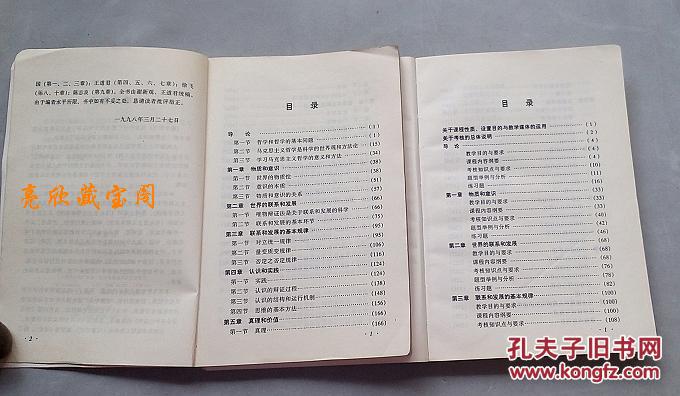 园(第一、二、三章);王道君(第四、五、六、七章);徐飞
(第八、十章);陈志良(第九章)。全书由
由于编者水平所限,书中如有不妥之处,恳请读者批评指正。
一九九八年三月二十七日
·2·
亮欣藏宝阁
目 录
导 论 (1)
第一节 哲学和哲学的基本问题 (1)
第二节 马克思主义哲学是科学的世界观和方法论 (15)
第三节 学习马克思主义哲学的意义和方法 (34)
第一章 物质和意识 (38)
第一节 世界的物质性 (38)
第二节 意识的本质 (51)
第三节 物质和意识的关系 (57)
第二章 世界的联系和发展 (66)
第一节 唯物辩证法是关于联系和发展的科学 (66)
第二节 联系和发展的基本环节 (76)
第三章 联系和发展的基本规律 (95)
第一节 对立统一规律 (95)
第二节 量变质变规律 (106)
第三节 否定之否定规律 (116)
第四章 认识和实践 (124)
第一节 实践 (124)
第二节 认识的辩证过程 (138)
第三节 认识的结构和运行机制 (148)
第四节 思维的基本方法 (156)
第五章 真理和价值 (166)
第一节 真理 (166)
·1·
目 录
关于课程性质、设置目的与教学媒体的运用
关于考核的总体说明 (1)
导 论
教学目的与要求
课程内容纲要
考核知识点与要求
题型举例与分析
练习题
第一章 物质和意识 (33)
教学目的与要求 (33)
课程内容纲要
考核知识点与要求
题型举例与分析
练习题
第二章 世界的联系和发展 (68)
教学目的与要求 (68)
课程内容纲要 (68)
考核知识点与要求 (76)
题型举例与分析 (78)
练习题 (82)
第三章 联系和发展的基本规律 (100)
教学目的与要求 (100)
课程内容纲要 (100)
考核知识点与要求 (108)
·1·
孔夫子旧书网
KONGFZ.COM